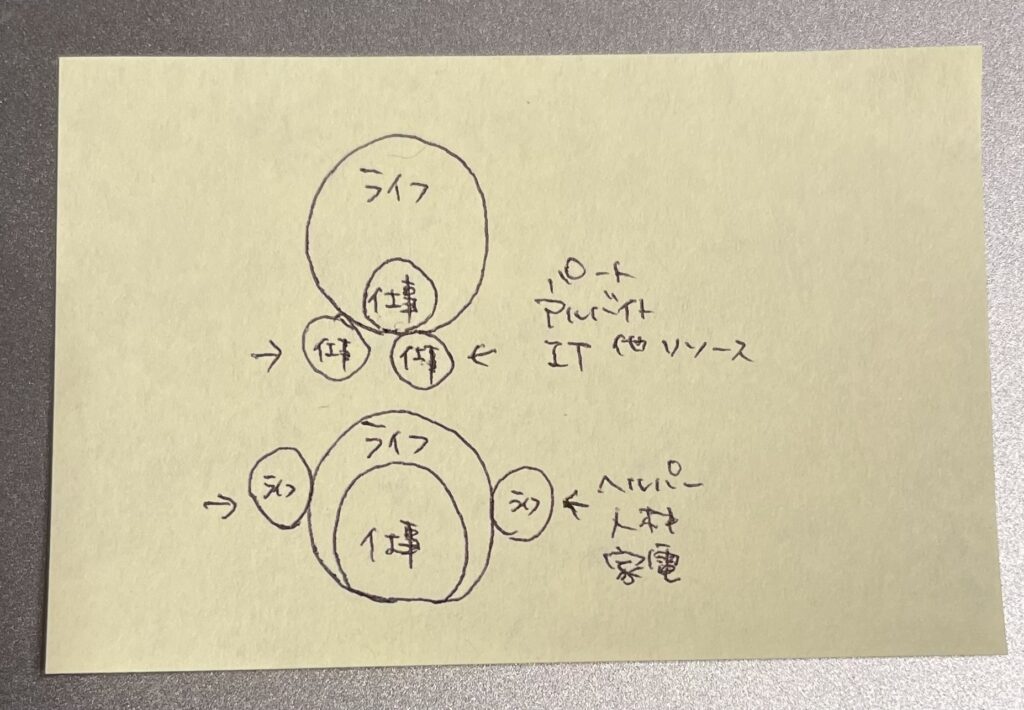 ライフ
仕事
→ 仕事 仕事 ←
パート
アルバイト
IT 他リソース
ライフ
→ ライフ ライフ ←
仕事
ヘルパー
人材
家電